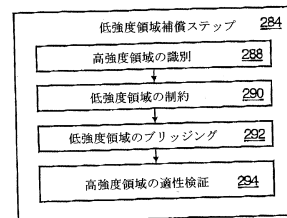 低強度領域補償ステップ 284
高強度領域の識別 288
低強度領域の制約 290
低強度領域のブリッジング 292
高強度領域の適性検証 294